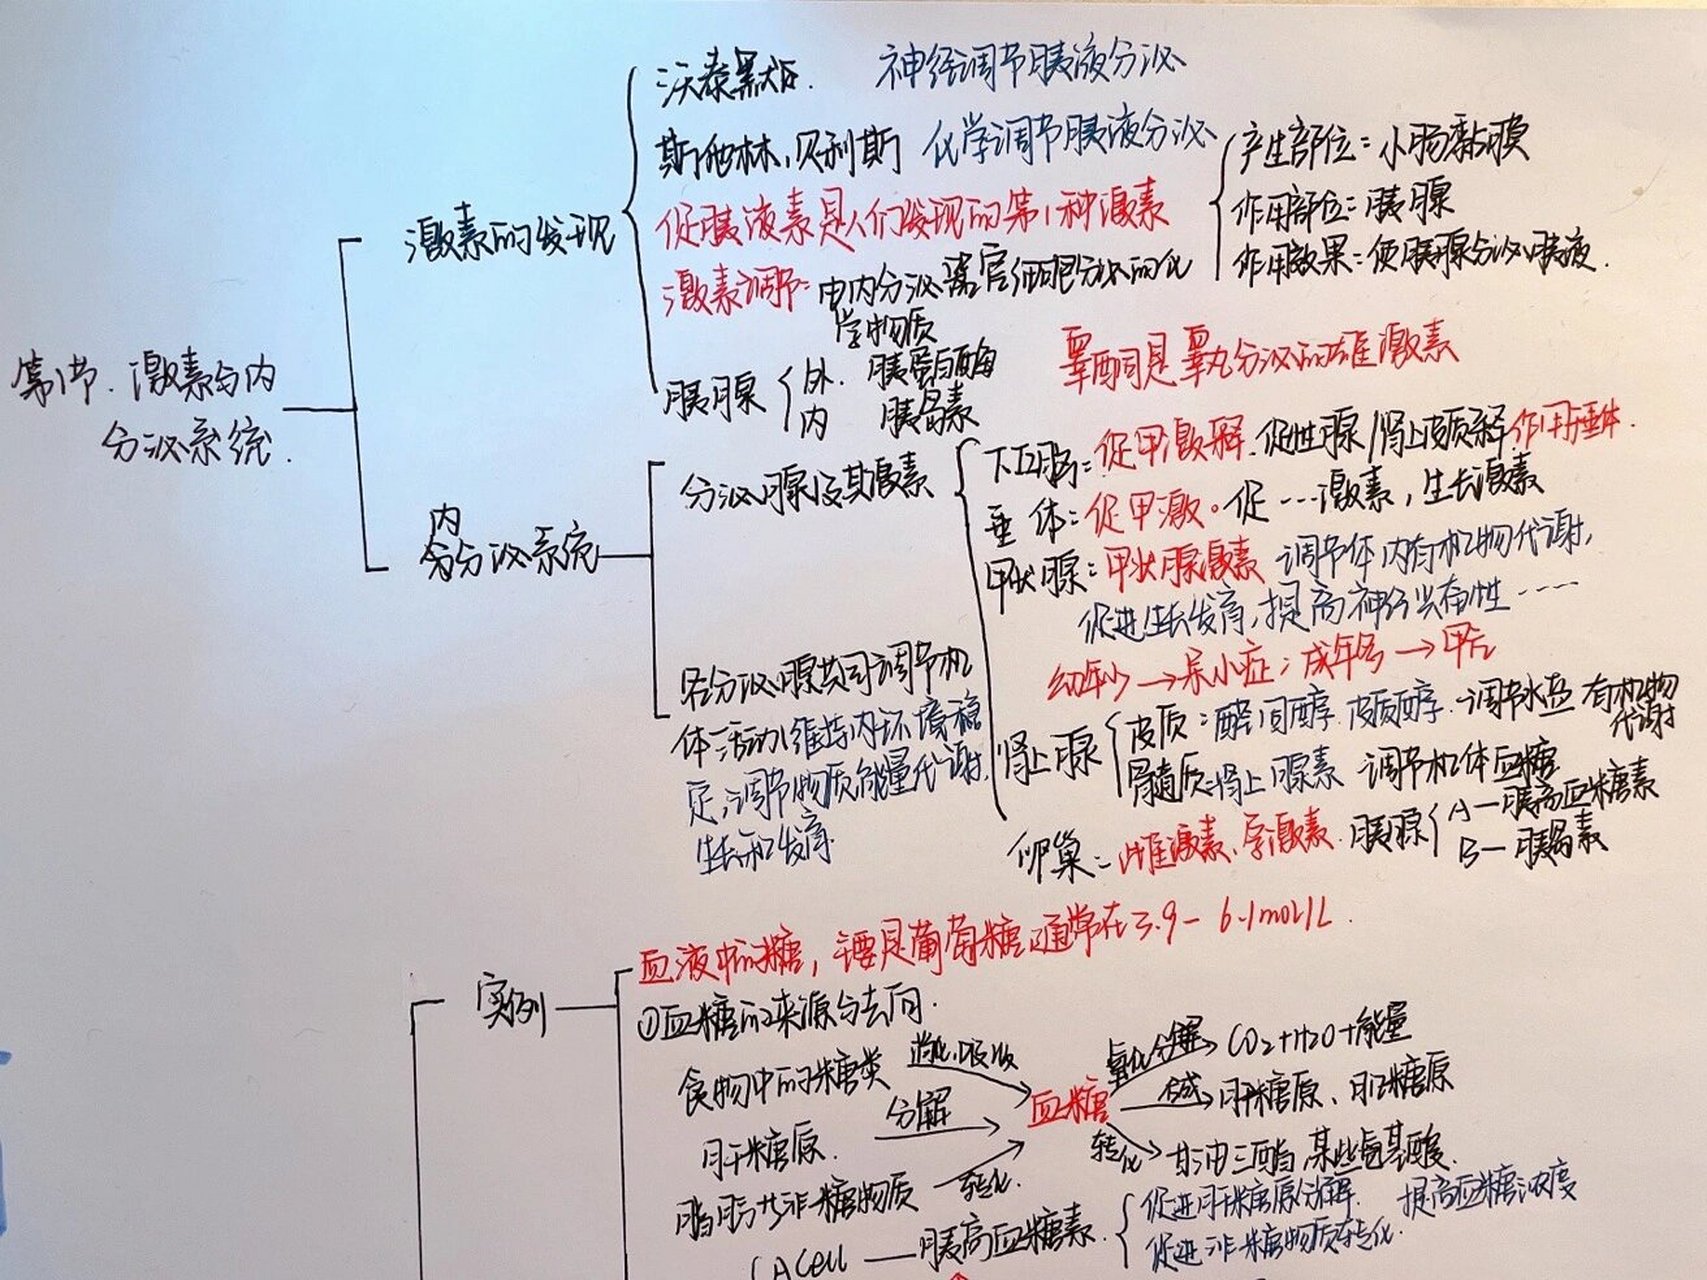 第1节.激素与内
分泌系统.
激素的发现
沃泰默始. 神经调节胰液分泌
斯他林,贝利斯 化学调节胰液分泌
产生部位:小肠黏膜
作用部位:胰腺
作用效果:使胰腺分泌胰液.
促胰液素是人们发现的第1种激素
激素调节:由内分泌器官细胞分泌的化
学物质
胰腺 外. 胰蛋白酶
内 胰岛素
睾酮是睾丸分泌的雄激素
内
分泌系统
分泌腺及其激素
下丘脑:促甲激释.促性腺/肾上皮质释 作用垂体.
垂体:促甲激。促…激素,生长激素
甲状腺:甲状腺激素 调节体内有机物代谢,
促进生长发育,提高神经兴奋性……
幼年少→呆小症;成年多→甲亢
肾上腺 皮质:醛固醇.皮质醇.调节水盐 有机物
代谢
髓质:肾上腺素 调节机体血糖
卵巢:雌激素、孕激素.胰腺 A—胰高血糖素
B—胰岛素
各分泌腺共同调节机
体活动,维持内环境稳
定,调节物质能量代谢,
生长和发育
实例
血液中的糖,主要是葡萄糖,通常在3.9-6.1mol/L.
①血糖的来源与去向.
食物中的糖类 消化.吸收
肝糖原. 分解
脂肪等非糖物质 转化.
血糖
氧化分解 CO2+H2O+能量
合成 肝糖原、肌糖原
转化 甘油三酯,某些氨基酸.
A cell — 胰高血糖素.
促进肝糖原分解. 提高血糖浓度
促进非糖物质转化.